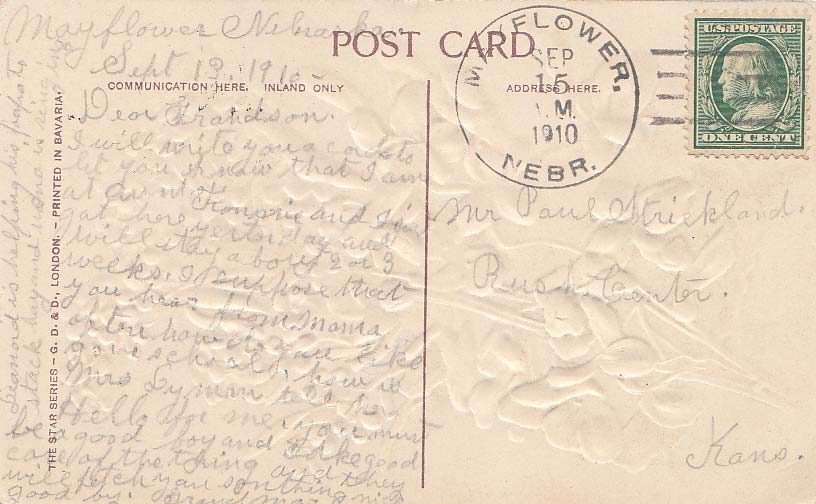 Mayflower Nebraska.
Sept 13, 1910
POST CARD
COMMUNICATION HERE. INLAND ONLY
ADDRESS HERE.
MAYFLOWER,
SEP
15
A.M.
1910
NEBR.
U.S. POSTAGE
ONE CENT
Dear Grandson.
I will write you a card to
let you know that I am
at Aunt
got here yesterday and
will stay about 2 or 3
weeks. I suppose that
you hear from Mama
often how do you like
your school, how is
Mrs Lyman tell her
Hello for me, you must
be a good boy and take good
care of the thing and they
will fetch you something
good by. Grand Ma
Mr Paul Strickland.
Rush Center.
Kans.
is helping his papa to
stack hay and
THE STAR SERIES – G. D. & D., LONDON. – PRINTED IN BAVARIA.